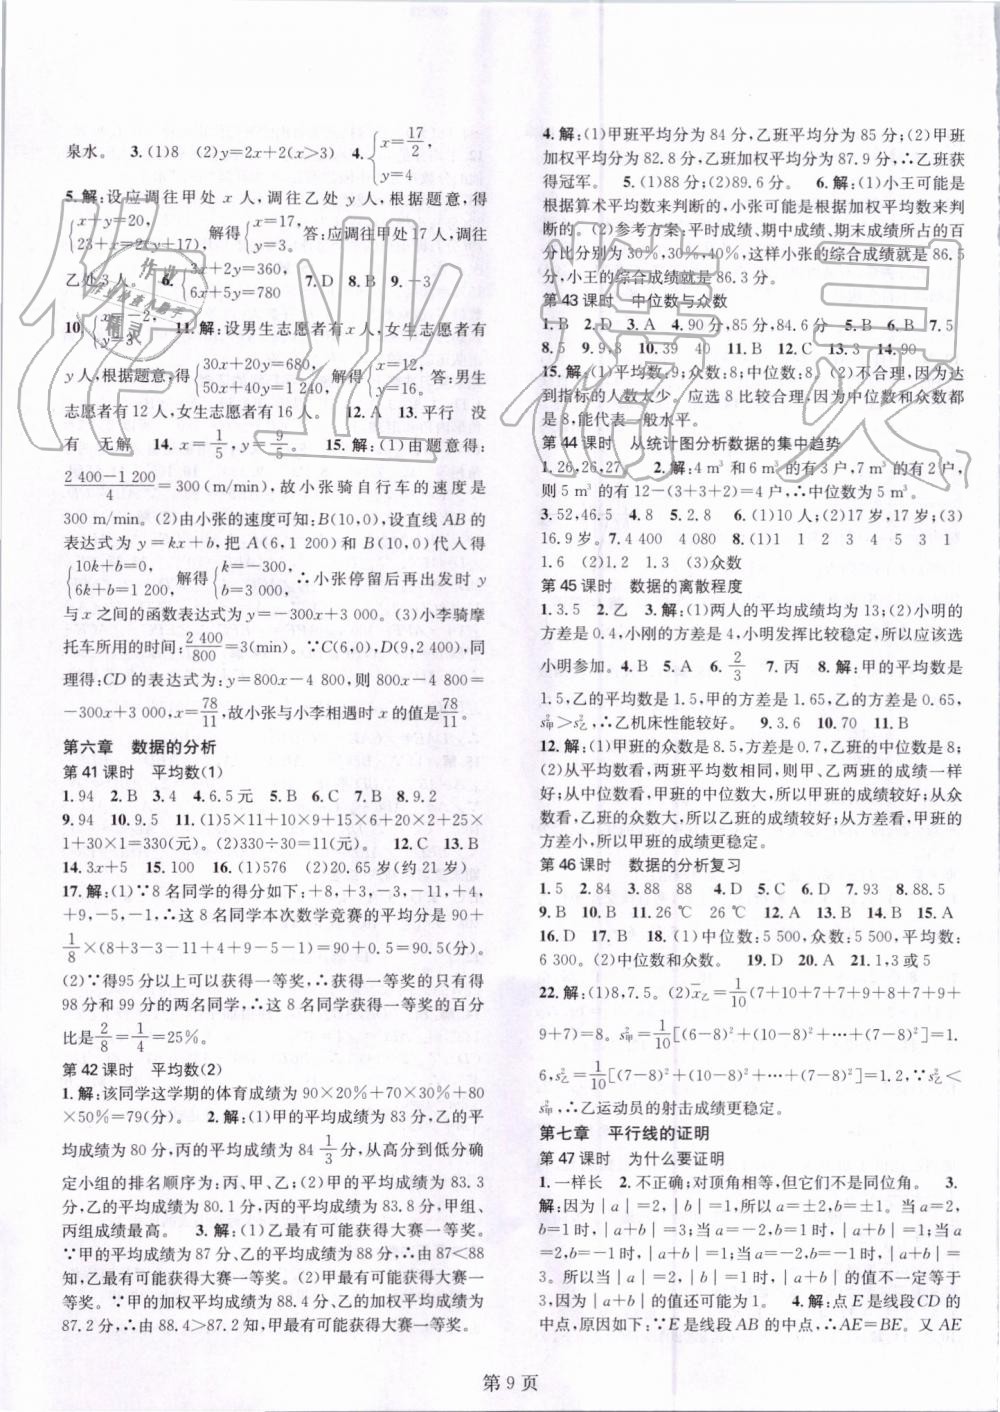 泉水。 3.(1)8 (2)y=2x+2(x>3) 4.{x=17/2, y=4
5.解:设应调往甲处 x 人,调往乙处 y 人,根据题意,得
{x+y=20, 23+x=2(y+17), 解得{x=17, y=3. 答:应调往甲处 17 人,调往
乙处 3 人。 6.{3x+2y=360, 6x+5y=780 7.D 8.B 9.-3
10.{x=-2, y=3 11.解:设男生志愿者有 x 人,女生志愿者有
y 人,根据题意,得{30x+20y=680, 50x+40y=1 240, 解得{x=12, y=16。 答:男生
志愿者有 12 人,女生志愿者有 16 人。 12.A 13.平行 没
有 无解 14.x=1/5,y=9/5 15.解:(1)由题意得:
(2 400-1 200)/4=300(m/min),故小张骑自行车的速度是
300 m/min。(2)由小张的速度可知:B(10,0),设直线 AB的
表达式为 y=kx+b,把 A(6,1 200)和 B(10,0)代入得
{10k+b=0, 6k+b=1200, 解得{k=-300, b=3 000, ∴小张停留后再出发时 y
与 x 之间的函数表达式为 y=-300x+3 000。(3)小李骑摩
托车所用的时间:2 400/800=3(min)。∵C(6,0),D(9,2 400),同
理得:CD的表达式为:y=800x-4 800,则 800x-4 800=
-300x+3 000,x=78/11,故小张与小李相遇时 x 的值是78/11。
第六章 数据的分析
第 41 课时 平均数(1)
1.94 2.B 3.4 4.6.5元 5.B 6.C 7.B 8.9.2
9.94 10.9.5 11.(1)5×11+10×9+15×6+20×2+25×
1+30×1=330(元)。(2)330÷30=11(元)。 12.C 13.B
14.3x+5 15.100 16.(1)576 (2)20.65岁(约 21岁)
17.解:(1)∵8 名同学的得分如下:+8,+3,-3,-11,+4,
+9,-5,-1,∴这 8 名同学本次数学竞赛的平均分是 90+
1/8×(8+3-3-11+4+9-5-1)=90+0.5=90.5(分)。
(2)∵得95分以上可以获得一等奖,∴获得一等奖的只有得
98分和 99分的两名同学,∴这 8 名同学获得一等奖的百分
比是2/8=1/4=25%。
第 42 课时 平均数(2)
1.解:该同学这学期的体育成绩为 90×20%+70×30%+
80×50%=79(分)。 2.解:(1)甲的平均成绩为 83 分,乙的平
均成绩为 80 分,丙的平均成绩为 84 1/3 分,∴从高到低确定三
个小组的排名顺序为:丙、甲、乙;(2)甲的平均成绩为 83.8
分,乙的平均成绩为 80.1 分,丙的平均成绩为 83.5 分,甲组、
丙组成绩最高。 3.解:(1)乙最有可能获得大赛一等奖。
∵甲的平均成绩为 87 分,乙的平均成绩为 88 分,由 87<88
知,乙最有可能获得大赛一等奖。(2)甲最有可能获得大赛一
等奖。∵甲的加权平均成绩为 88.4 分,乙的加权平均成绩为
87.2 分,∴由 88.4>87.2 知,甲最有可能获得大赛一等奖。
4.解:(1)甲班平均分为 84 分,乙班平均分为 85 分;(2)甲班
加权平均分为 82.8 分,乙班加权平均分为 87.9 分,∴乙班获
得冠军。 5.(1)88分;(2)89.6分。 6.解:(1)小王可能是
根据算术平均数来判断的,小张可能是根据加权平均数来判
断的。(2)参考方案:平时成绩、期中成绩、期末成绩所占的百
分比分别为 30%,30%,40%,这样小张的综合成绩就是 86.5
分,小王的综合成绩就是 86.3 分。
第 43 课时 中位数与众数
1.B 2.D 3.A 4.90分,85分,84.6 分 5.B 6.B 7.5
8.5 9.9,8 10.39 40 11.B 12.C 13.3 14.90
15.解:(1)平均数:9;众数:8;中位数:8。(2)不合理,因为大
于平均数的人数太少。应选 8 比较合理,因为中位数和众数
都是 8,能代表一般水平。
第 44 课时 从统计图分析数据的集中趋势
1.26,26,27 2.解:4 m³ 和 6 m³ 的有 3户,7 m³ 的有 2户,
则 5 m³ 的有 12-(3+3+2)=4 户,∴中位数为 5 m³。
3.52,46.5 4.8 5.2.8 6.(1)10人;(2)17 岁,17 岁;(3)
16.9 岁。 7.4 400 4 080 8.(1)1 1 2 3 4 5 3 1
1.6 (2)1.2 1.6 (3)众数
第 45 课时 数据的离散程度
1.3.5 2.乙 3.解:(1)两人的平均成绩均为 13;(2)小明的
方差是 0.4,小刚的方差为 4,小明发挥比较稳定,所以应该选
小明参加。 4.B 5.A 6.2/3 7.丙 8.解:甲的平均数是
1.5,乙的平均数是 1.5,甲的方差是 1.65,乙的方差是 0.65,
s²甲>s²乙,∴乙机床性能较好。 9.3.6 10.70 11.B
12.解:(1)甲班的众数是 8.5,方差是0.7,乙班的中位数是 8;
(2)从平均数看,两班平均数相同,则甲、乙两班的成绩一样
好;从中位数看,甲班的中位数大,所以甲班的成绩较好;从众
数看,乙班的众数大,所以乙班的成绩较好;从方差看,甲班的
方差小,所以甲班的成绩更稳定。
第 46 课时 数据的分析复习
1.5 2.84 3.88 88 4.D 5.D 6.C 7.93 8.88.5
9.B 10.B 11.26℃ 26℃ 12.A 13.B 14.B 15.A
16.D 17.B 18.(1)中位数:5 500,众数:5 500,平均数:
6 300。(2)中位数和众数。 19.D 20.A 21.1,3或5
22.解:(1)8,7.5。(2)x̄乙=1/10(7+10+7+7+9+8+7+9+
9+7)=8。s²甲=1/10[(6-8)²+(10-8)²+…+(7-8)²]=1.
6,s²乙=1/10[(7-8)²+(10-8)²+…+(7-8)²]=1.2,∵s²乙<
s²甲,∴乙运动员的射击成绩更稳定。
第七章 平行线的证明
第 47 课时 为什么要证明
1.一样长 2.不正确:对顶角相等,但它们不是同位角。 3.
解:因为|a|=2,|b|=1,所以 a=±2,b=±1。当 a=2,
b=1时,|a+b|=3;当 a=-2,b=1时,|a+b|=1;当 a
=2,b=-1 时,|a+b|=1;当 a=-2,b=-1时,|a+b|=
3。所以当|a|=2,|b|=1 时,|a+b|的值不一定等于
3,因为|a+b|的值还可能为 1。 4.解:点 E是线段CD的
中点,原因如下:∵E 是线段 AB 的中点,∴AE=BE。又 AE
第 9 页